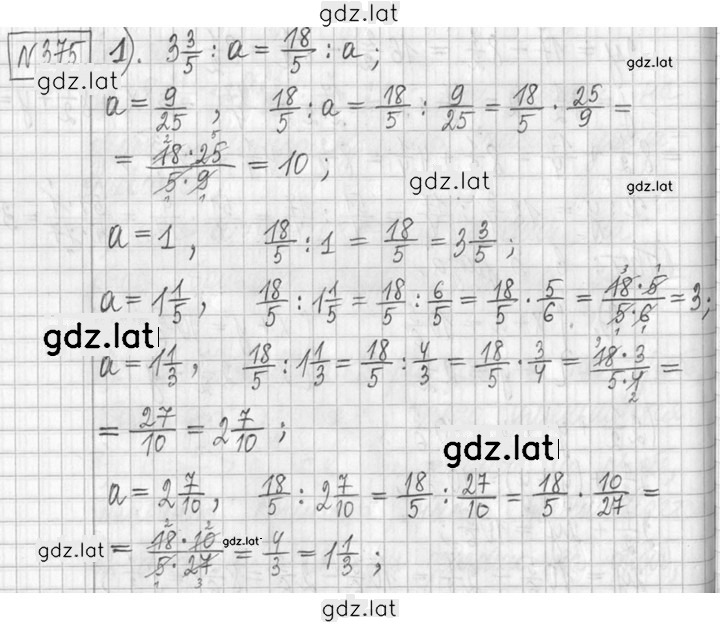 gdz.lat
№375 1). 3 3/5 : a = 18/5 : a ;
gdz.lat gdz.lat
a = 9/25 , 18/5 : a = 18/5 : 9/25 = 18/5 · 25/9 =
= 18·25/5·9 = 10 ;
gdz.lat gdz.lat
a = 1 , 18/5 : 1 = 18/5 = 3 3/5 ;
a = 1 1/5 , 18/5 : 1 1/5 = 18/5 : 6/5 = 18/5 · 5/6 = 18·5/5·6 = 3;
gdz.lat
a = 1 1/3 , 18/5 : 1 1/3 = 18/5 : 4/3 = 18/5 · 3/4 = 18·3/5·4 =
= 27/10 = 2 7/10 ;
gdz.lat
a = 2 7/10 , 18/5 : 2 7/10 = 18/5 : 27/10 = 18/5 · 10/27 =
gdz.lat = 18·10/5·27 gdz.lat = 4/3 = 1 1/3 ;
gdz.lat
gdz.lat